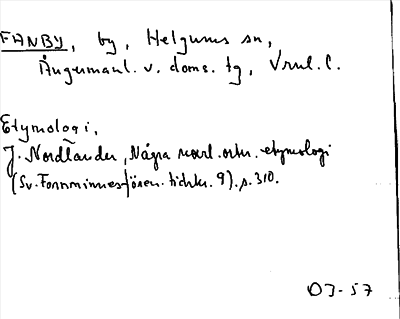 FANBY, by, Helgums sn,
Ångermanl. v. doms. tg, Vrnl. l.
Etymologi,
J. Nordlander, Några norrl. ortn. etymologi
(Sv. Fornminnesfören. tidskr. 9). s. 310.
OJ-57